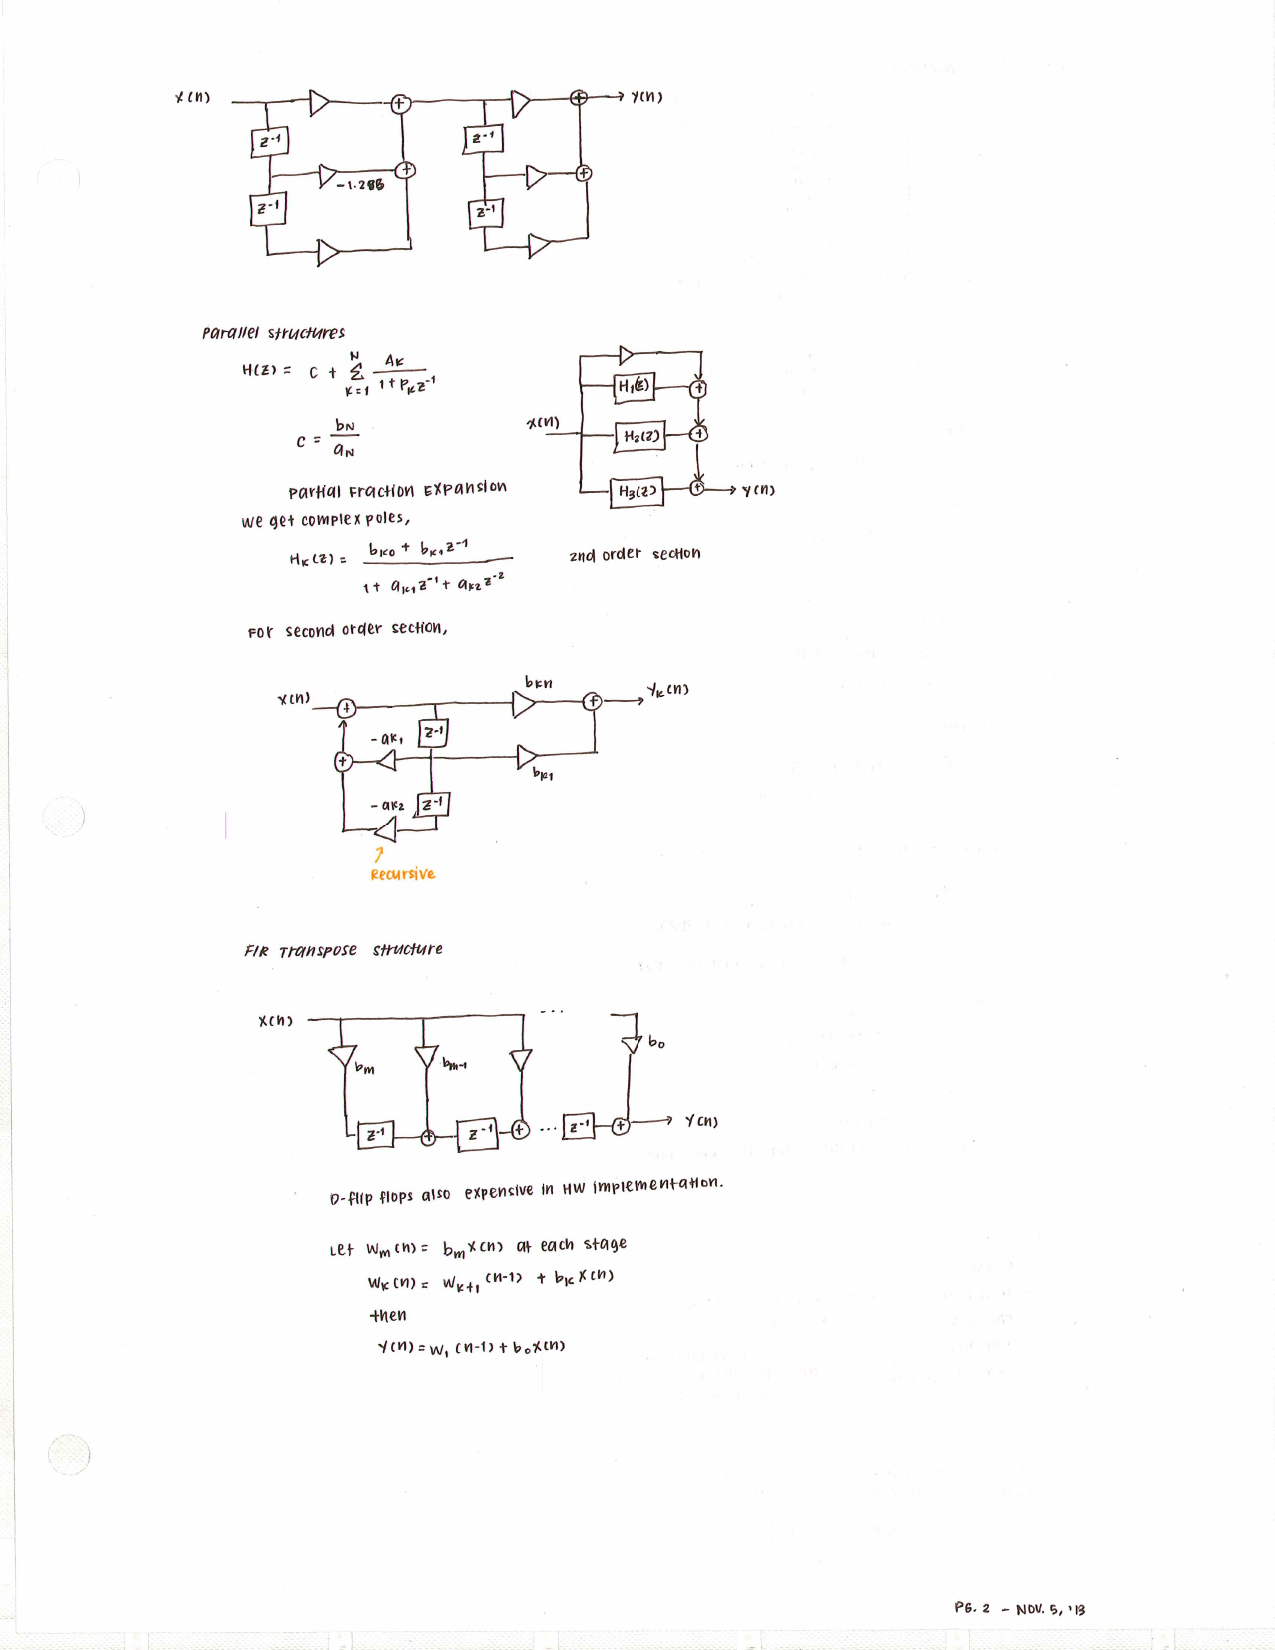 x(n)
y(n)
z⁻¹
z⁻¹
-1.288
z⁻¹
z⁻¹
Parallel structures
H(z) = C + Σ_{k=1}^{N} A_k / (1 + P_k z⁻¹)
C = b_N / a_N
x(n)
H₁(z)
H₂(z)
H₃(z)
y(n)
Partial Fraction Expansion
We get complex poles,
H_k(z) = (b_k0 + b_k1 z⁻¹) / (1 + a_k1 z⁻¹ + a_k2 z⁻²)
2nd order section
For second order section,
x(n)
b_kn
y_k(n)
-a_k1
z⁻¹
b_k1
-a_k2
z⁻¹
Recursive
FIR Transpose structure
x(n)
...
b_m
b_m-1
b₀
z⁻¹
z⁻¹
...
z⁻¹
y(n)
D-flip flops also expensive in HW implementation.
Let w_m(n) = b_m x(n) at each stage
w_k(n) = w_k+1(n-1) + b_k x(n)
then
y(n) = w₁(n-1) + b₀x(n)
PG. 2 - NOV. 5, '13